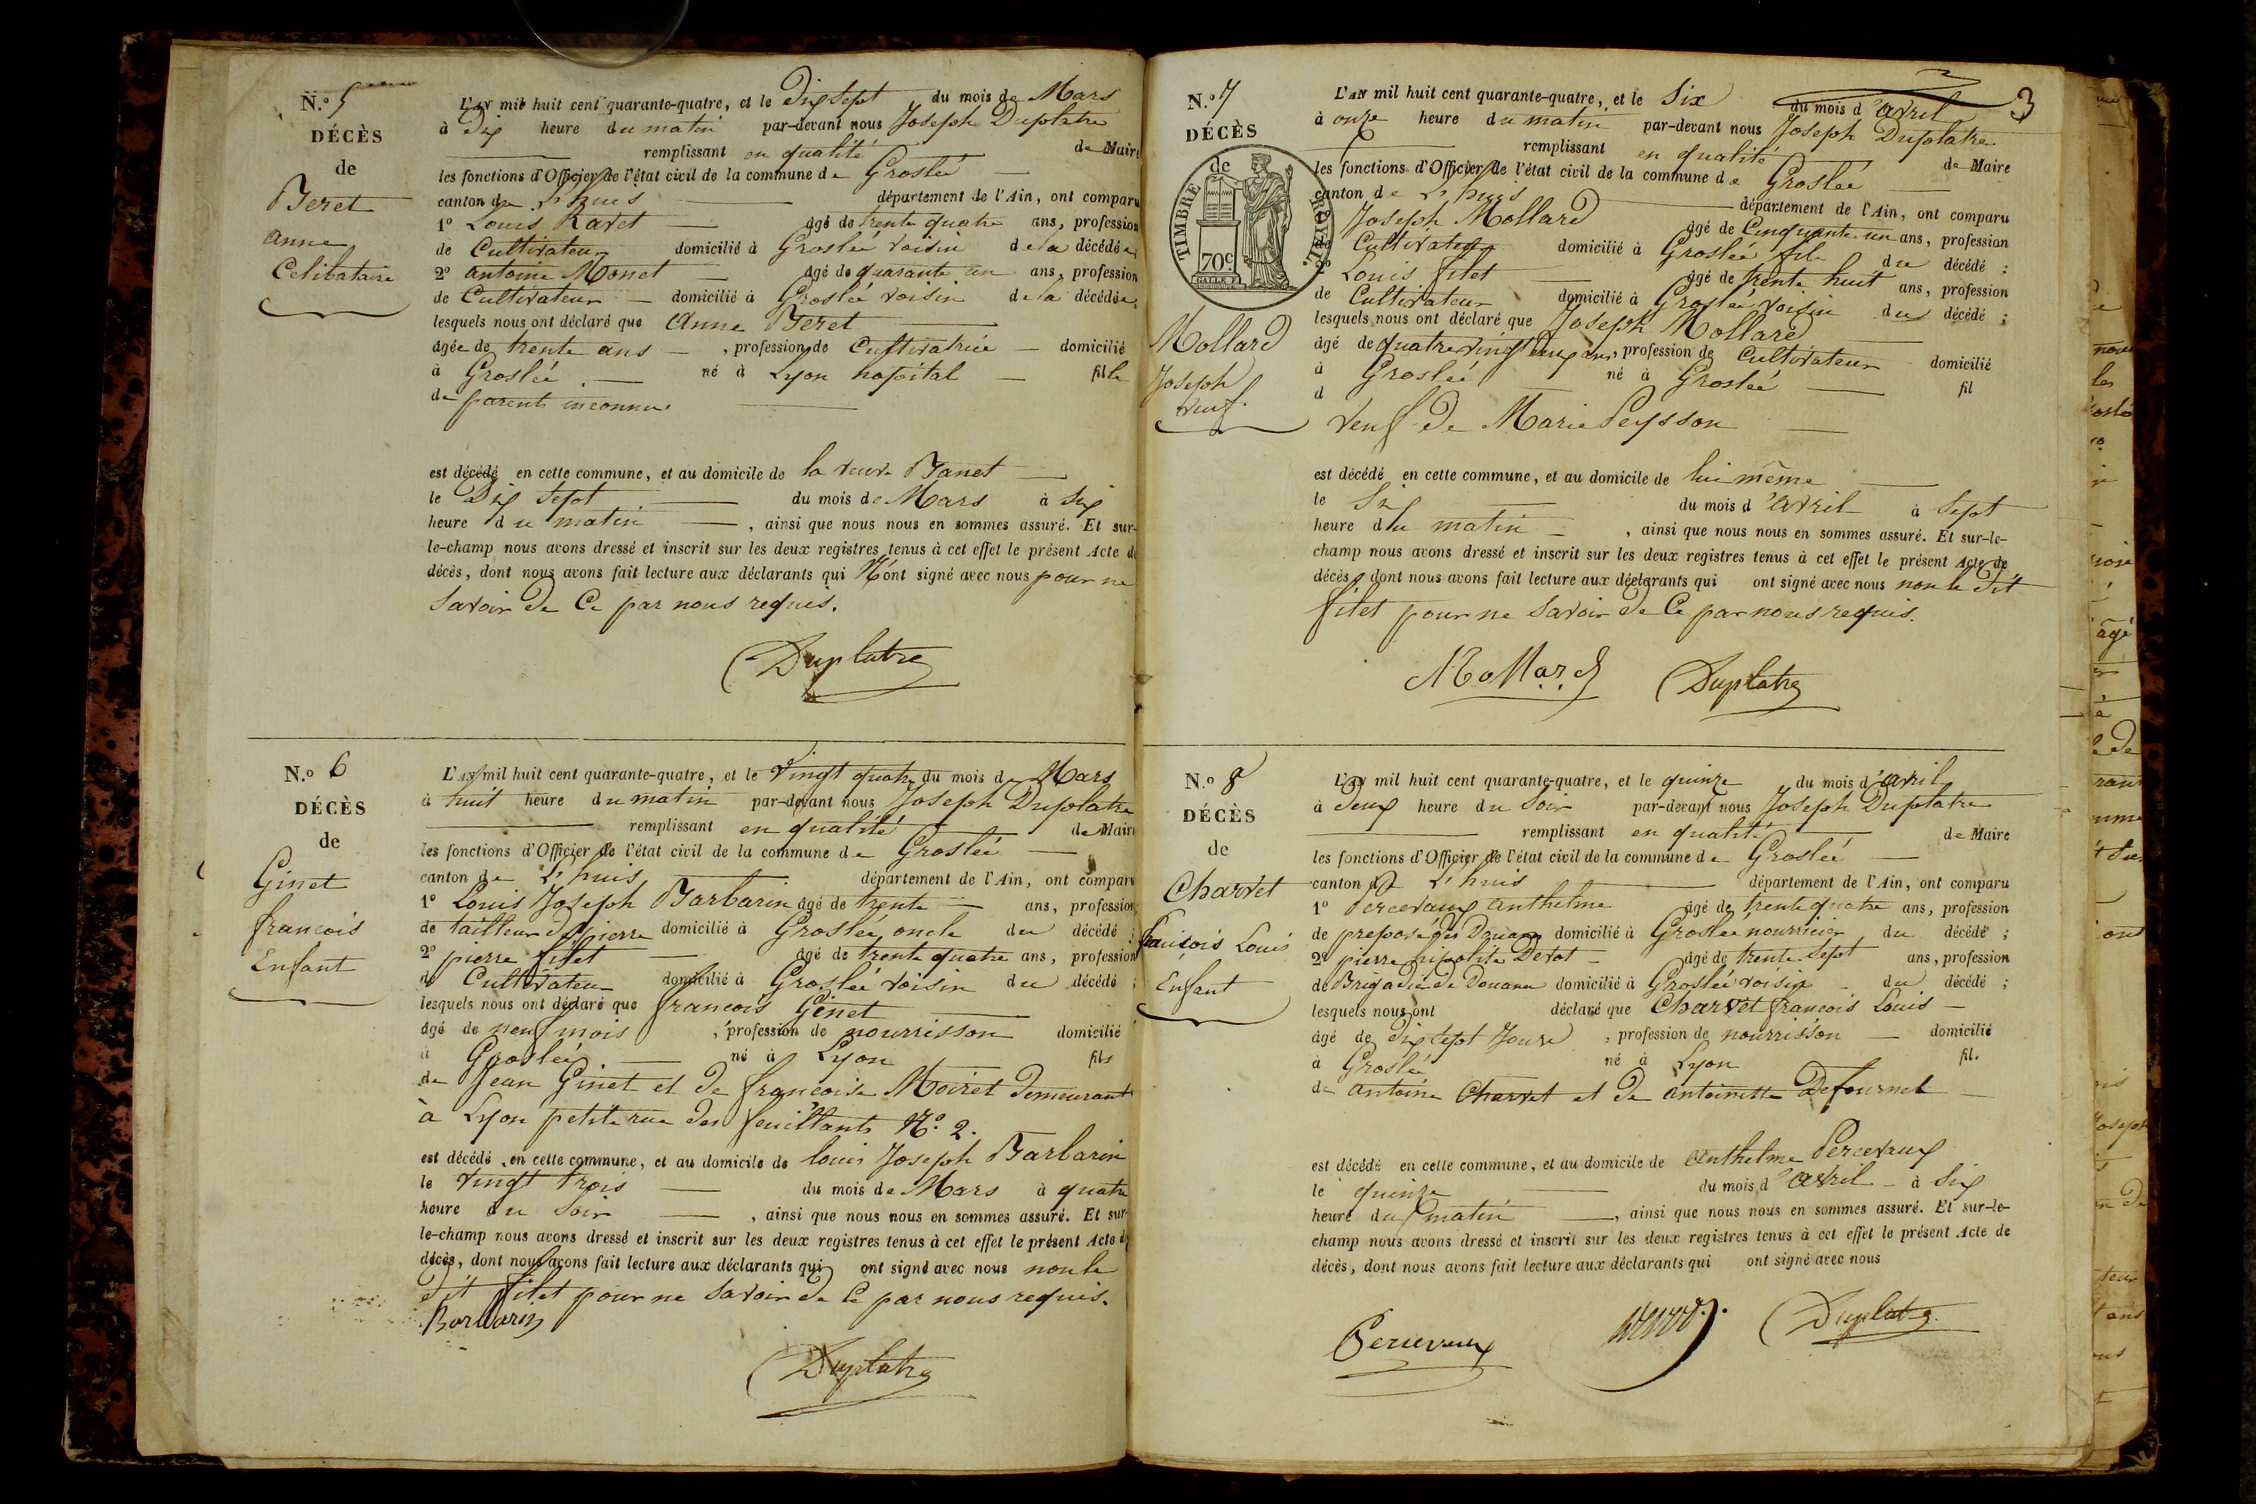 N.º 5
DÉCÈS
de
Beret
anne
Celibataire
L'AN mil huit cent quarante-quatre, et le Dix Sept du mois de Mars
à Dix heure du matin par-devant nous Joseph Duplatre
remplissant en qualité de Maire
les fonctions d'Officier de l'état civil de la commune de Groslée
canton de L'huis département de l'Ain, ont comparu
1º Louis Ravet agé de trente quatre ans, profession
de Cultivateur domicilié à Groslée voisin de la décédée
2º antoine Monet agé de quarante un ans, profession
de Cultivateur domicilié à Groslée voisin de la décédée
lesquels nous ont déclaré que Anne Beret
agée de trente ans, profession de Cultivatrice domicilié
à Groslée né à Lyon hopital fille
de parents inconnus
est décédé en cette commune, et au domicile de la veuve Banet
le Dix Sept du mois de Mars à Six
heure du matin, ainsi que nous nous en sommes assuré. Et sur-
le-champ nous avons dressé et inscrit sur les deux registres tenus à cet effet le présent Acte de
décès, dont nous avons fait lecture aux déclarants qui N'ont signé avec nous pour ne
Savoir de Ce par nous requis.
Duplatre
N.º 6
DÉCÈS
de
Ginet
francois
Enfant
L'AN mil huit cent quarante-quatre, et le Vingt quatre du mois de Mars
à huit heure du matin par-devant nous Joseph Duplatre
remplissant en qualité de Maire
les fonctions d'Officier de l'état civil de la commune de Groslée
canton de L'huis département de l'Ain, ont comparu
1º Louis Joseph Barbarin agé de trente ans, profession
de tailleur de pierre domicilié à Groslée oncle du décédé ;
2º pierre filet agé de trente quatre ans, profession
de Cultivateur domicilié à Groslée voisin du décédé ;
lesquels nous ont déclaré que francois Ginet
agé de neuf mois, profession de nourrisson domicilié
à Groslée né à Lyon fils
de Jean Ginet et de francoise Moiret demeurant
à Lyon petite rue des feuillants Nº. 2.
est décédé en cette commune, et au domicile de louis Joseph Barbarin
le vingt trois du mois de Mars à quatre
heure du Soir, ainsi que nous nous en sommes assuré. Et sur-
le-champ nous avons dressé et inscrit sur les deux registres tenus à cet effet le présent Acte de
décès, dont nous avons fait lecture aux déclarants qui ont signé avec nous non le
dit filet pour ne Savoir de Ce par nous requis.
Barbarin
Duplatre
3
N.º 7
DÉCÈS
de
TIMBRE ROYAL.
70c.
Mollard
Joseph
veuf
L'AN mil huit cent quarante-quatre, et le Six du mois d'avril
à onze heure du matin par-devant nous Joseph Duplatre
remplissant en qualité de Maire
les fonctions d'Officier de l'état civil de la commune de Groslée
canton de L'huis département de l'Ain, ont comparu
Joseph Mollard agé de Cinquante un ans, profession
Cultivateur domicilié à Groslée fils du décédé ;
Louis filet agé de trente huit ans, profession
de Cultivateur domicilié à Groslée voisin du décédé ;
lesquels nous ont déclaré que Joseph Mollard
agé de quatre vingt deux ans, profession de Cultivateur domicilié
à Groslée né à Groslée fil
d
Veuf de Marie Peysson
est décédé en cette commune, et au domicile de lui même
le Six du mois d'avril à Sept
heure du matin, ainsi que nous nous en sommes assuré. Et sur-le-
champ nous avons dressé et inscrit sur les deux registres tenus à cet effet le présent Acte de
décès, dont nous avons fait lecture aux déclarants qui ont signé avec nous non le dit
filet pour ne Savoir de Ce par nous requis.
Mollard Duplatre
N.º 8
DÉCÈS
de
Charvet
francois Louis
Enfant
L'AN mil huit cent quarante-quatre, et le quinze du mois d'avril
à deux heure du Soir par-devant nous Joseph Duplatre
remplissant en qualité de Maire
les fonctions d'Officier de l'état civil de la commune de Groslée
canton de L'huis département de l'Ain, ont comparu
1º Percevaux anthelme agé de trente quatre ans, profession
de preposé des Douanes domicilié à Groslée nourricier du décédé ;
2º pierre hipolite Devot agé de trente Sept ans, profession
de Brigadier de Douanes domicilié à Groslée voisin du décédé ;
lesquels nous ont déclaré que Charvet francois Louis
agé de dix Sept Jours, profession de nourrisson domicilié
à Groslée né à Lyon fils
de antoine Charvet et de antoinette Defournel
est décédé en cette commune, et au domicile de Anthelme Percevaux
le quinze du mois d'avril à Six
heure du matin, ainsi que nous nous en sommes assuré. Et sur-le-
champ nous avons dressé et inscrit sur les deux registres tenus à cet effet le présent Acte de
décès, dont nous avons fait lecture aux déclarants qui ont signé avec nous
Percevaux Duplatre